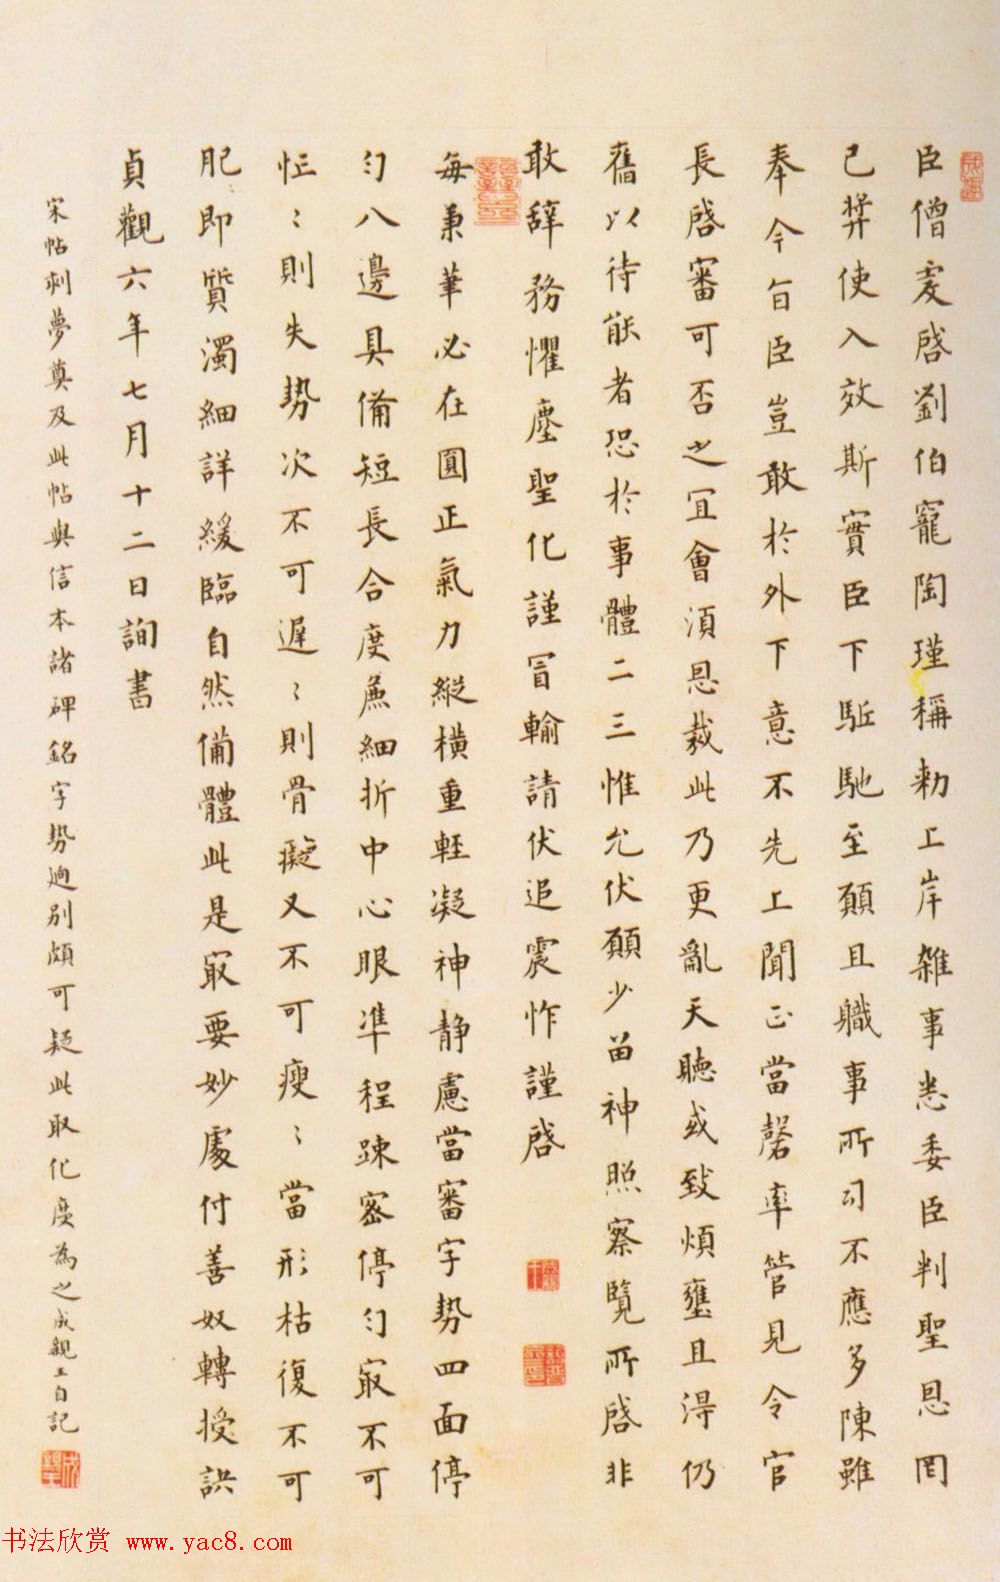 臣僧䖍啓劉伯寵陶瑾稱勑上岸雜事悉委臣判聖恩罔
已弊使入效斯實臣下駈馳至願且職事所司不應多陳雖
奉今旨臣豈敢於外下意不先上聞正當罄率管見令官
長啓審可否之宜會湏恩裁此乃更亂天聽或致煩壅且得仍
舊以待能者恐於事體二三惟允伏願少留神照察覽所啓非
敢辭務懼塵聖化謹冒輸請伏追震怍謹啓
每秉筆必在圓正氣力縱橫重軽凝神静慮當審字勢四面停
匀八邊具備短長合度麁細折中心眼準程踈密停匀㝡不可
忙〻則失勢次不可遲〻則骨癡又不可瘦〻當形枯復不可
肥〻即質濁細詳緩臨自然備體此是㝡要妙處付善奴轉授訣
貞觀六年七月十二日詢書
宋帖刺夢奠及此帖與信本諸碑銘字勢迥别頗可疑此取化度為之成親王自記
書法欣赏 www.yac8.com